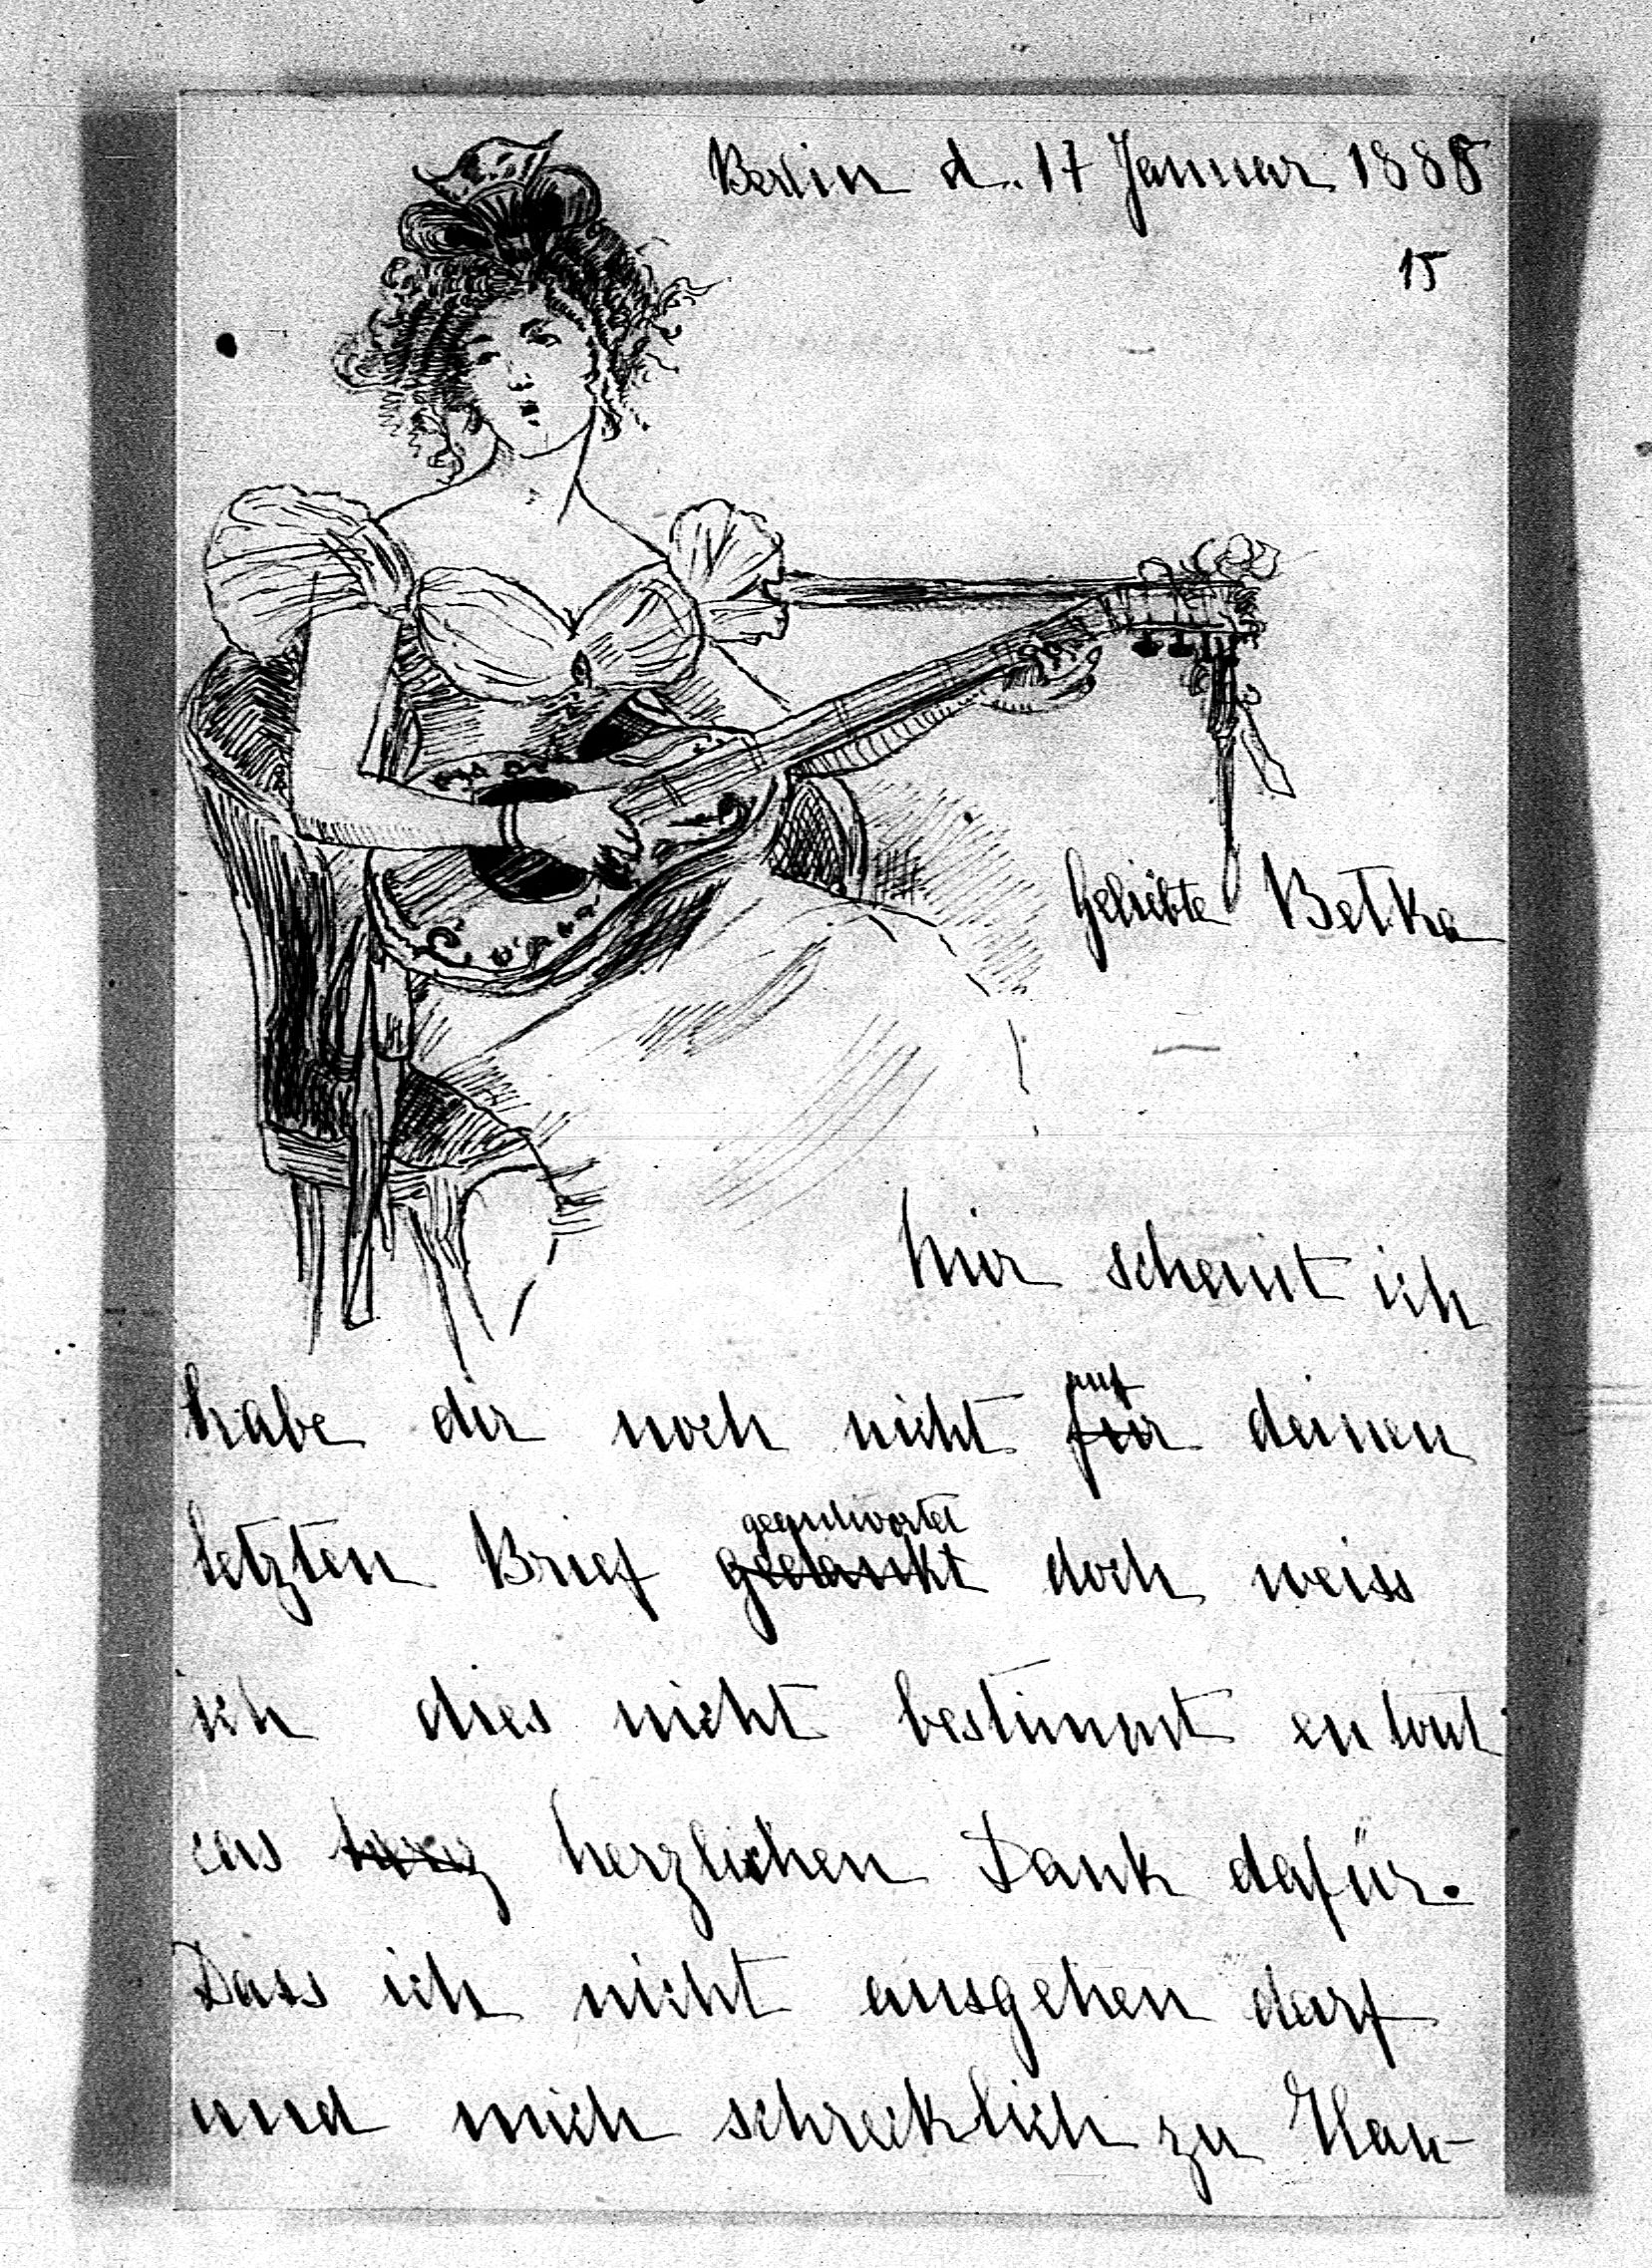 Berlin d. 17 Januar 1888
15
Geliebte Betka
Mir scheint ich
habe dir noch nicht für auf deinen
letzten Brief gedankt geantwortet doch weiss
ich dies nicht bestimmt en tout
cas herzlichen Dank dafür.
Dass ich nicht ausgehen darf
und mich schrecklich zu Hau-